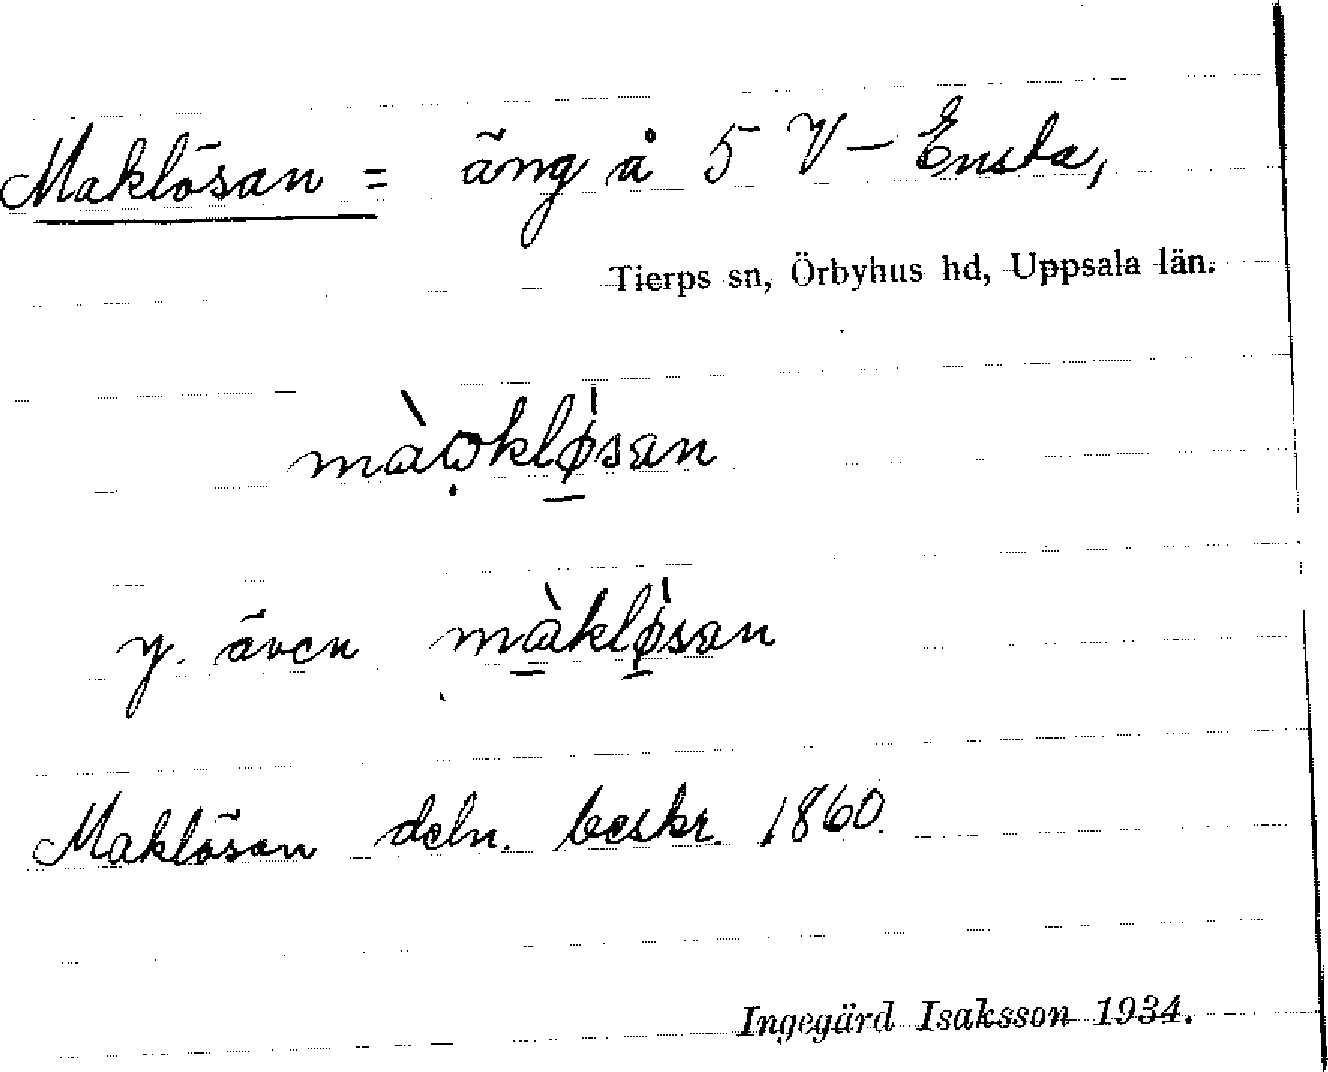 Maklösan = äng å 5 V-Ensta,
Tierps sn, Örbyhus hd, Uppsala län.
y. även
Maklösan deln. beskr. 1860.
Ingegärd Isaksson 1934.